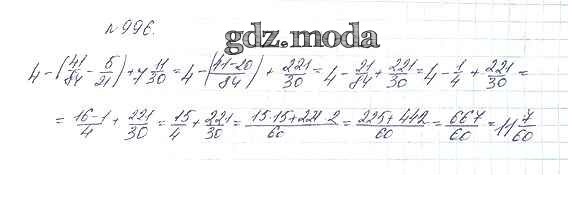 №996.
gdz.moda
4 - (41/84 - 5/21) + 7 11/30 = 4 - (41-20/84) + 221/30 = 4 - 21/84 + 221/30 = 4 - 1/4 + 221/30 =
= 16-1/4 + 221/30 = 15/4 + 221/30 = 15·15+221·2/60 = 225+442/60 = 667/60 = 11 7/60